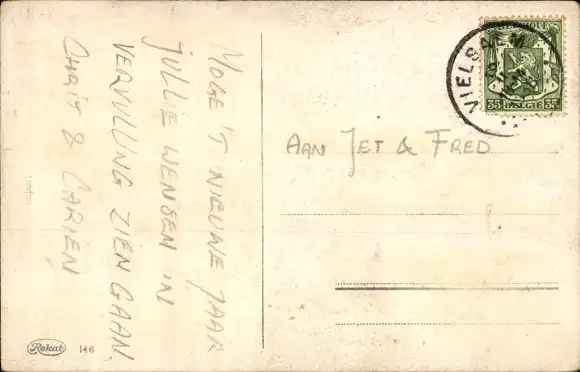 MOGE 'T NIEUWE JAAR
JULLIE WENSEN IN
VERVULLING ZIEN GAAN.
CHRIS & CARIEN
AAN JET & FRED
BELGIQUE
35 BELGIE 35
VIELSALM
Rokat 146